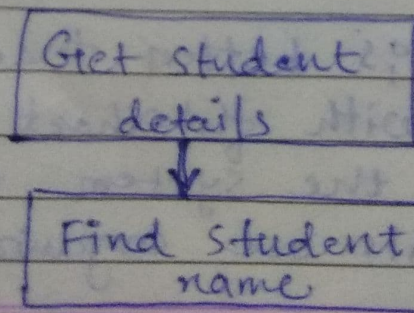 Get student
details
Find student
name